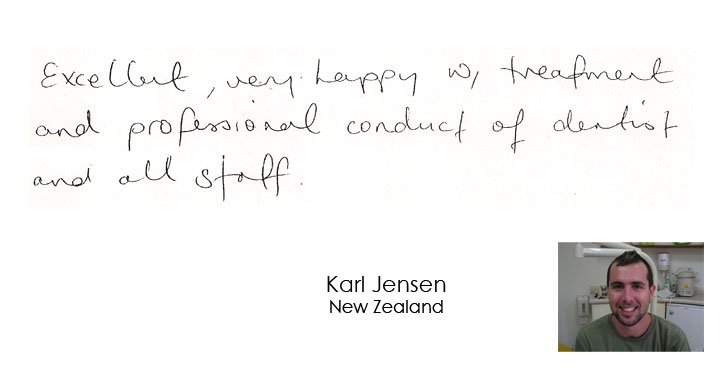 Excellent, very happy w/ treatment
and professional conduct of dentist
and all staff.
Karl Jensen
New Zealand